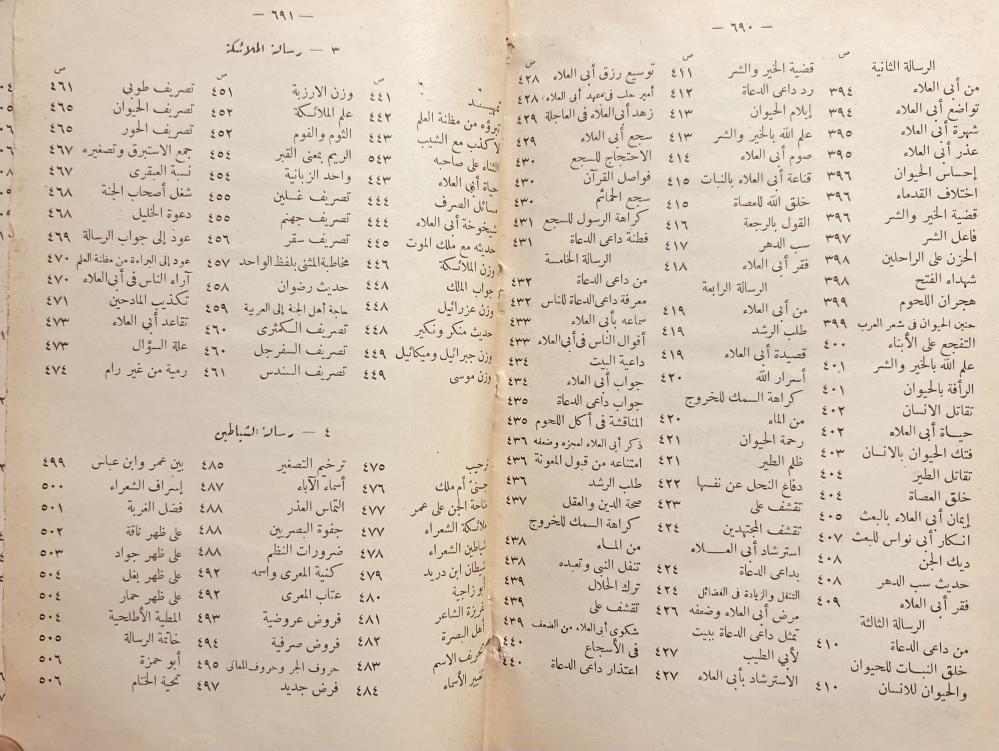 — ٦٩٠ —
ص
الرسالة الثانية
من أبى العلاء ٣٩٤
تواضع أبى العلاء ٣٩٤
شهرة أبى العلاء ٣٩٥
عذر أبى العلاء ٣٩٥
إحساس الحيوان ٣٩٦
اختلاف القدماء ٣٩٦
قضية الخير والشر ٣٩٦
فاعل الشر ٣٩٧
الحزن على الراحلين ٣٩٨
شهداء الفتح ٣٩٨
هجران اللحوم ٣٩٩
حنين الحيوان فى شعر العرب ٣٩٩
التفجع على الأبناء ٤٠٠
علم الله بالخير والشر ٤٠١
الرأفة بالحيوان ٤٠١
تقاتل الانسان ٤٠٢
حياة أبى العلاء ٤٠٢
فتك الحيوان بالانسان ٤٠٣
تقاتل الطير ٤٠٤
خلق العصاة ٤٠٤
إيمان أبى العلاء بالبعث ٤٠٥
انكار أبى نواس للبعث ٤٠٧
ديك الجن ٤٠٨
حديث سب الدهر ٤٠٨
فقر أبى العلاء ٤٠٩
الرسالة الثالثة
من داعى الدعاة ٤١٠
خلق النبات للحيوان
والحيوان للانسان ٤١٠
ص
قضية الخير والشر ٤١١
رد داعى الدعاة ٤١٢
إيلام الحيوان ٤١٣
علم الله بالخير والشر ٤١٣
صوم أبى العلاء ٤١٤
قناعة أبى العلاء بالنبات ٤١٥
خلق الله للعصاة ٤١٥
القول بالرجعة ٤١٦
سب الدهر ٤١٧
فقر أبى العلاء ٤١٨
الرسالة الرابعة
من أبى العلاء ٤١٩
طلب الرشد ٤١٩
قصيدة أبى العلاء ٤١٩
أسرار الله ٤٢٠
كراهة السمك للخروج
من الماء ٤٢٠
رحمة الحيوان ٤٢١
ظلم الطير ٤٢١
دفاع النحل عن نفسها ٤٢٢
تقشف على ٤٢٣
تقشف المجتهدين ٤٢٤
استرشاد أبى العلاء
بداعى الدعاة ٤٢٤
التنفل والزيادة فى الفضائل ٤٢٤
مرض أبى العلاء وضعفه ٤٢٦
تمثل داعى الدعاة ببيت
لأبى الطيب ٤٢٧
الاسترشاد بأبى العلاء ٤٢٧
ص
توسيع رزق أبى العلاء ٤٢٨
أمير حلب فى معهد أبى العلاء ٤٢٨
زهد أبى العلاء فى العاجلة ٤٢٩
سجع أبى العلاء ٤٢٩
الاحتجاج للسجع ٤٣٠
فواصل القرآن ٤٣٠
سجع الحمائم ٤٣٠
كراهة الرسول للسجع ٤٣١
فطنة داعى الدعاة ٤٣١
الرسالة الخامسة
من داعى الدعاة ٤٣٢
معرفة داعى الدعاة للناس ٤٣٢
سماعه بأبى العلاء ٤٣٣
أقوال الناس فى أبى العلاء ٤٣٣
داعية البيت ٤٣٤
جواب أبى العلاء ٤٣٤
جواب داعى الدعاة ٤٣٥
المناقشة فى أكل اللحوم ٤٣٥
ذكر أبى العلاء لعجزه وضعفه ٤٣٦
امتناعه من قبول المعونة ٤٣٦
طلب الرشد ٤٣٦
صحة الدين والعقل ٤٣٧
كراهة السمك للخروج
من الماء ٤٣٨
تنفل النبى وتعبده ٤٣٨
ترك الحلال ٤٣٩
تقشف على ٤٣٩
شكوى أبى العلاء من الضعف ٤٣٩
فى الأسجاع ٤٤٠
اعتذار داعى الدعاة ٤٤٠
— ٦٩١ —
٣ — رسالة الملائكة
ص
تمهيد ٤٤١
تبرؤه من مظنة العلم ٤٤٢
لا كذب مع الشيب ٤٤٣
الثناء على صاحبه ٥٤٣
حياة أبى العلاء ٤٤٣
مسائل الصرف ٤٤٤
شيخوخة أبى العلاء ٤٤٤
حديثه مع ملك الموت ٤٤٥
وزن الملائكة ٤٤٦
جواب الملك ٤٤٨
وزن عزرائيل ٤٤٨
حديث منكر ونكير ٤٤٨
وزن جبرائيل وميكائيل ٤٤٩
وزن موسى ٤٤٩
ص
وزن الارزبة ٤٥١
علم الملائكة ٤٥٢
الثوم والفوم ٤٥٢
الريم بمعنى القبر ٤٥٤
واحد الزبانية ٤٥٤
تصريف غسلين ٤٥٥
تصريف جهنم ٤٥٥
تصريف سقر ٤٥٦
مخاطبة المثنى بلفظ الواحد ٤٥٧
حديث رضوان ٤٥٨
حاجة أهل الجنة إلى العربية ٤٥٩
تصريف الكمثرى ٤٦٠
تصريف السفرجل ٤٦٠
تصريف السندس ٤٦١
ص
تصريف طوبى ٤٦١
تصريف الحيوان ٤٦٥
تصريف الحور ٤٦٥
جمع الاستبرق وتصغيره ٤٦٧
نسبة العبقرى ٤٦٧
شغل أصحاب الجنة ٤٦٨
دعوة الخليل ٤٦٨
عود إلى جواب الرسالة ٤٦٩
عود إلى البراءة من مظنة العلم ٤٧٠
آراء الناس فى أبى العلاء ٤٧٠
تكذيب المادحين ٤٧١
تقاعد أبى العلاء ٤٧٣
علة السؤال ٤٧٣
رمية من غير رام ٤٧٤
٤ — رسالة الشياطين
ترحيب ٤٧٥
جنىّ أم ملك ٤٧٦
مناحة الجن على عمر ٤٧٧
ملائكة الشعراء ٤٧٧
شياطين الشعراء ٤٧٨
شيطان ابن دريد ٤٧٩
أبو زاجية ٤٨٠
غريزة الشاعر ٤٨١
أهل البصرة ٤٨٢
تحريف الاسم ٤٨٣
تغيير الأسماء ٤٨٤
ترخيم التصغير ٤٨٥
أسماء الآباء ٤٨٧
التماس العذر ٤٨٨
جفوة البصريين ٤٨٨
ضرورات النظم ٤٨٨
كنية المعرى واسمه ٤٩٢
عتاب المعرى ٤٩٢
فروض عروضية ٤٩٣
فروض صرفية ٤٩٤
حروف الجر وحروف المعانى ٤٩٥
فرض جديد ٤٩٧
بين عمر وابن عباس ٤٩٩
إسراف الشعراء ٥٠٠
فضل الغربة ٥٠١
على ظهر ناقة ٥٠٢
على ظهر جواد ٥٠٣
على ظهر بغل ٥٠٤
على ظهر حمار ٥٠٤
المطية الأطلحية ٥٠٤
خاتمة الرسالة ٥٠٥
أبو حمزة ٥٠٦
تحية الختام ٥٠٦